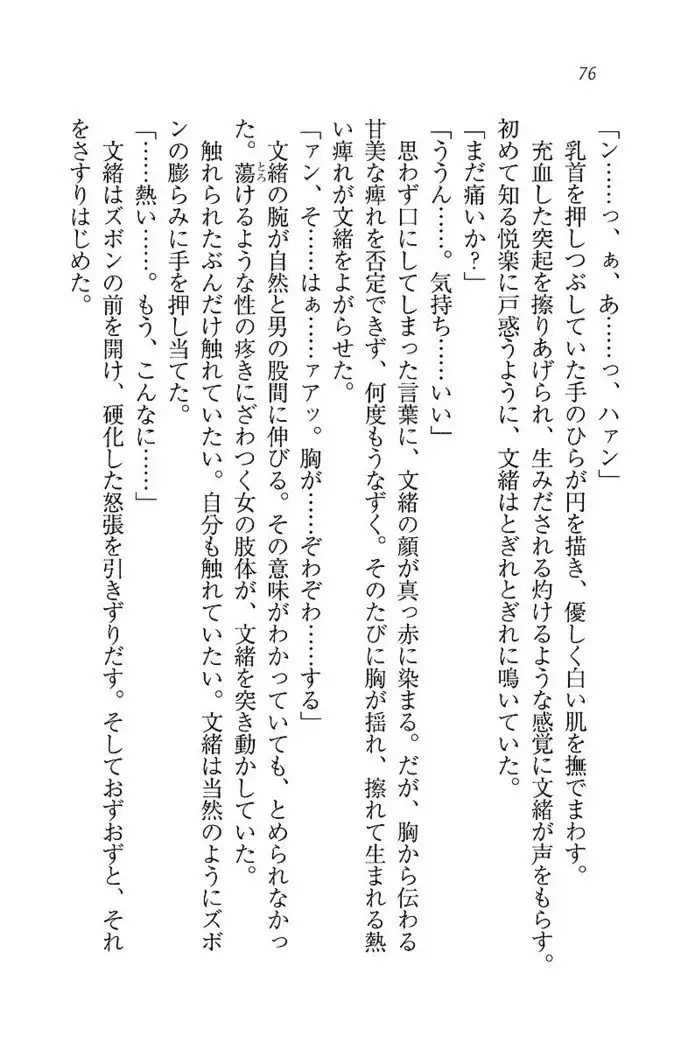 76
「ン……っ、ぁ、あ……っ、ハァン」
乳首を押しつぶしていた手のひらが円を描き、優しく白い肌を撫でまわす。
充血した突起を擦りあげられ、生みだされる灼けるような感覚に文緒が声をもらす。
初めて知る悦楽に戸惑うように、文緒はとぎれとぎれに鳴いていた。
「まだ痛いか?」
「ううん……。気持ち……いい」
思わず口にしてしまった言葉に、文緒の顔が真っ赤に染まる。だが、胸から伝わる
甘美な痺れを否定できず、何度もうなずく。そのたびに胸が揺れ、擦れて生まれる熱
い痺れが文緒をよがらせた。
「アン、そ……はぁ……ァアッ。胸が……ぞわぞわ……する」
文緒の腕が自然と男の股間に伸びる。その意味がわかっていても、とめられなかっ
た。蕩けるような性の疼きにざわつく女の肢体が、文緒を突き動かしていた。
とろ
触れられたぶんだけ触れていたい。自分も触れていたい。文緒は当然のようにズボ
ンの膨らみに手を押し当てた。
「……熱い……。もう、こんなに……」
文緒はズボンの前を開け、硬化した怒張を引きずりだす。そしておずおずと、それ
をさすりはじめた。